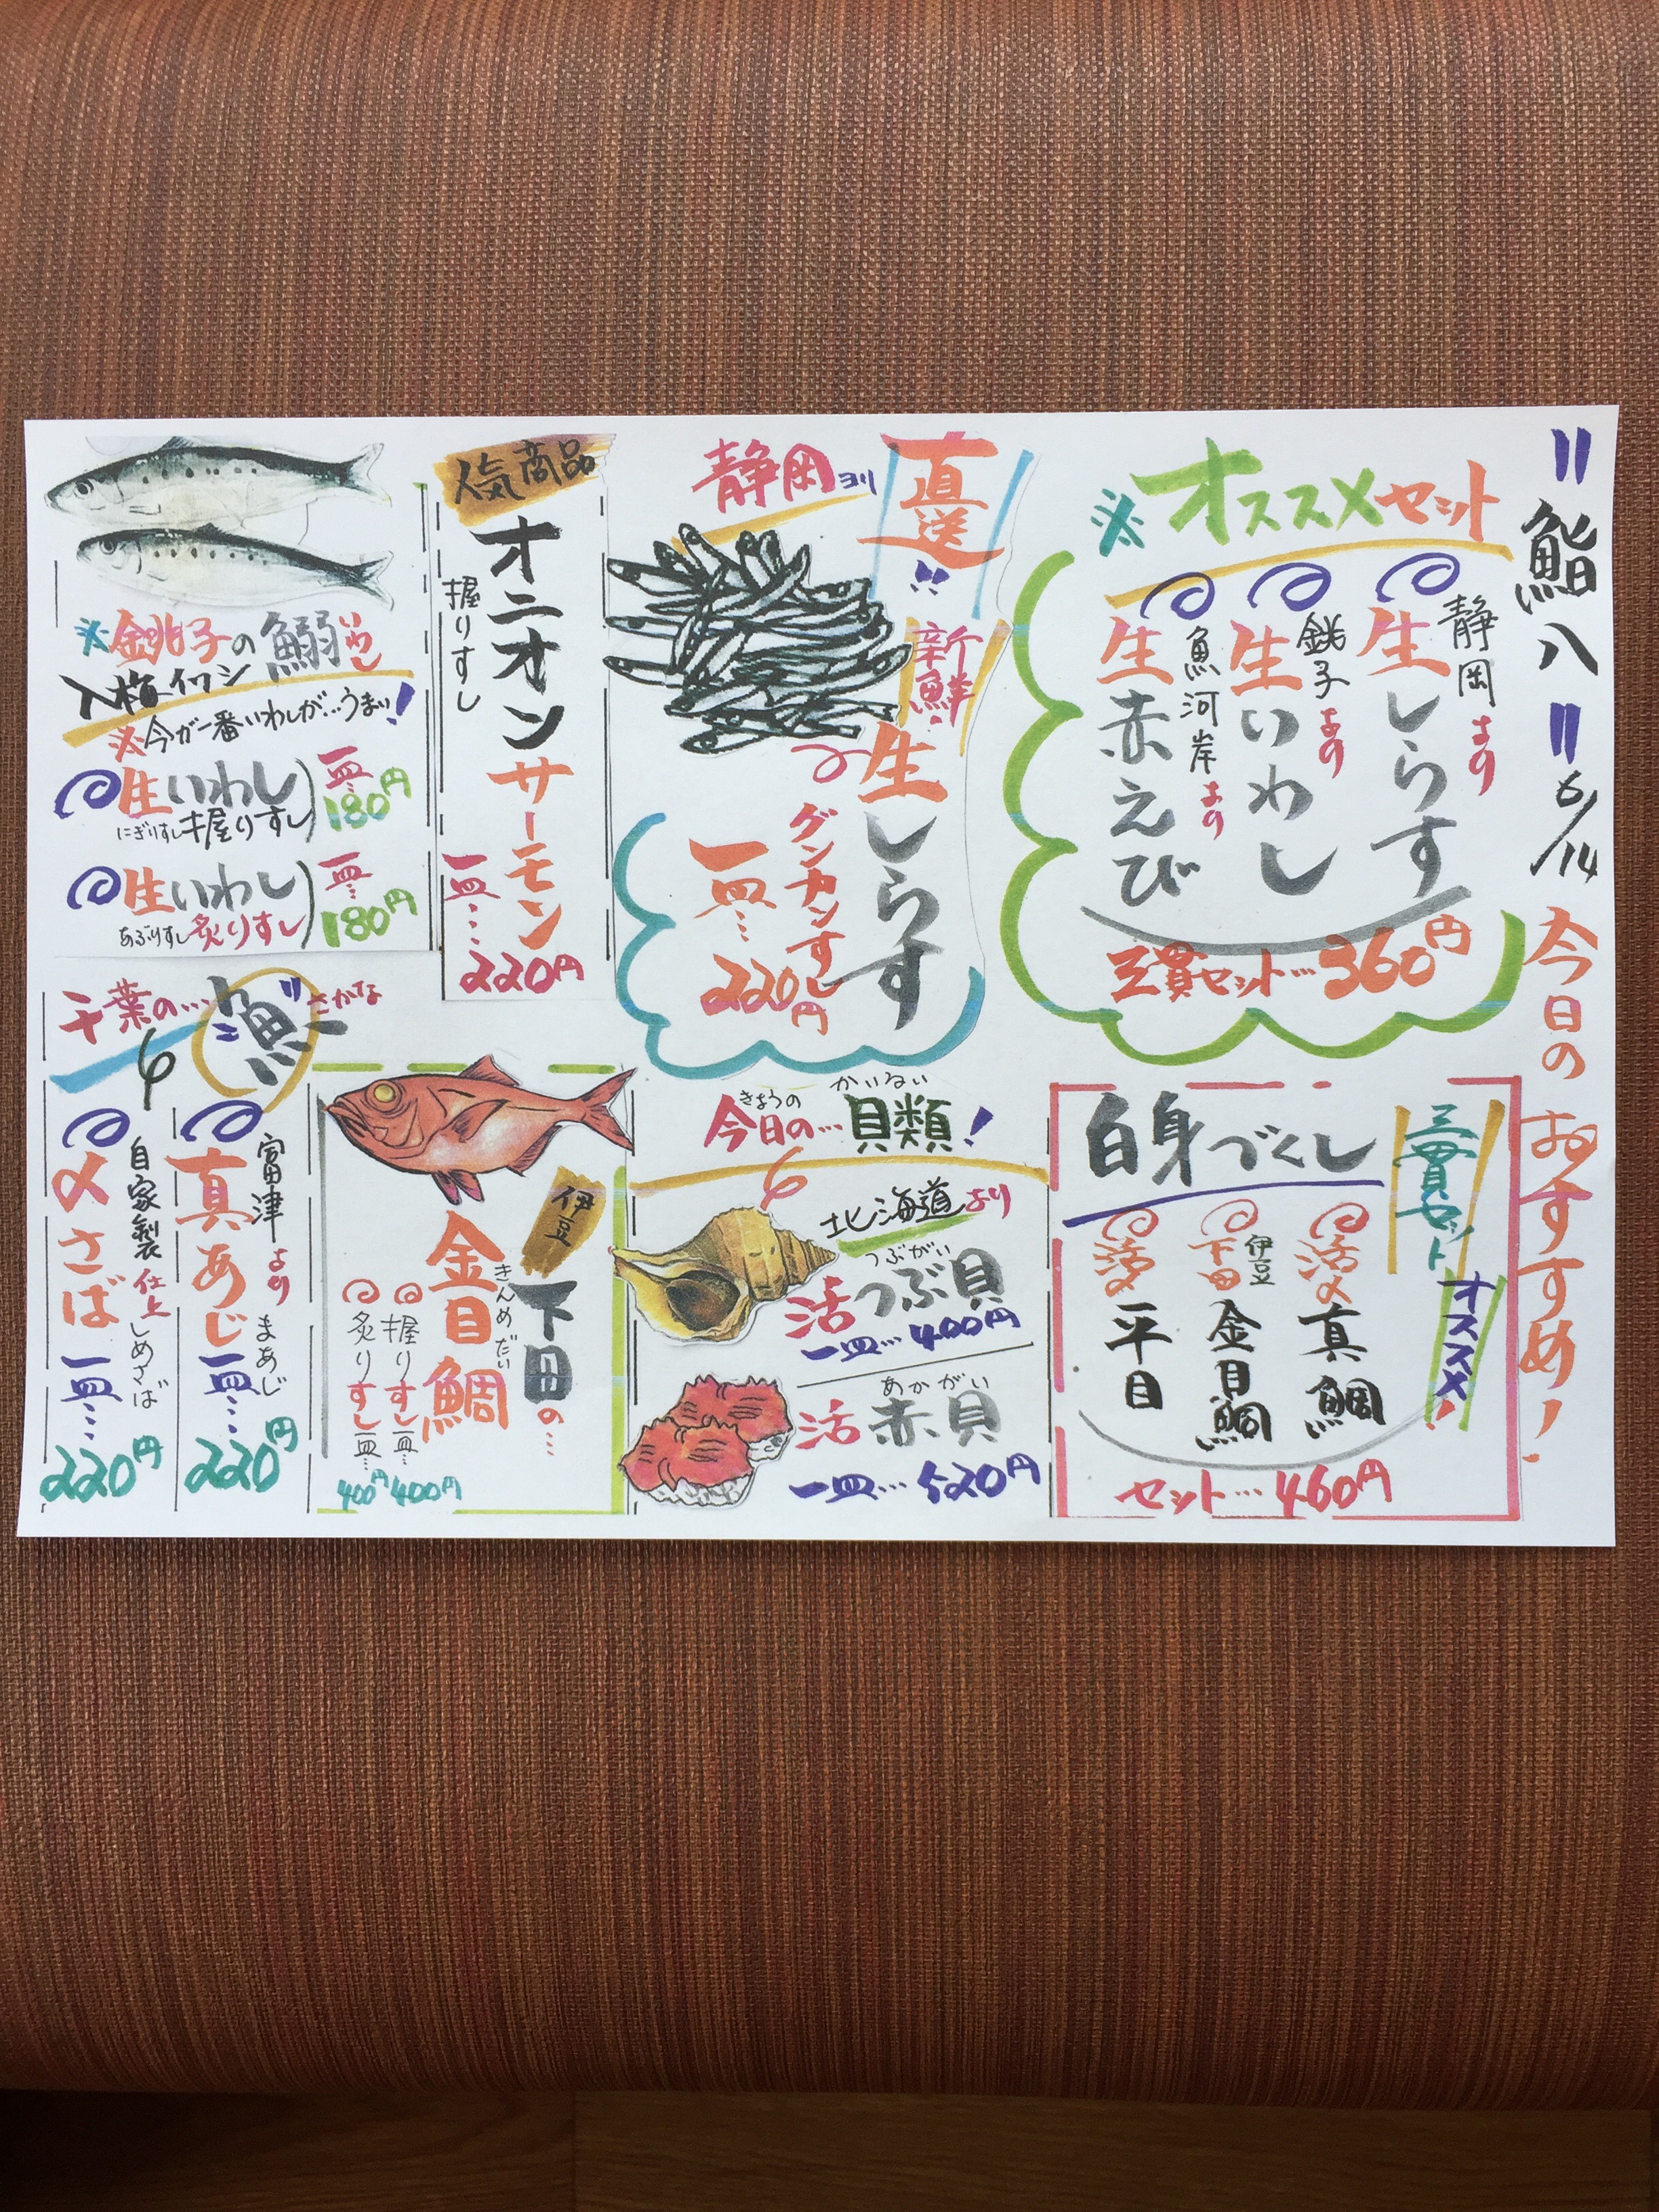 〃鮨八〃 6/14 今日のおすすめ!
※オススメセット
静岡より
生しらす
銚子より
生いわし
魚河岸より
生赤えび
三貫セット…360円
静岡ヨリ
直送!!
新鮮!
生しらす
グンカンすし
一皿…
220円
人気商品
オニオンサーモン
握りすし
一皿…220円
※銚子の鰯
いわし
入梅イワシ
※今が一番いわしが…うまい!
生いわし
にぎりすし
握りすし
一皿…
180円
生いわし
あぶりすし
炙りすし
一皿…
180円
白身づくし
三貫セット
オススメ!
活〆真鯛
伊豆
下田金目鯛
活〆平目
セット…460円
きょうの
かいるい
今日の…貝類!
北海道より
つぶがい
活つぶ貝
一皿…400円
あかがい
活赤貝
一皿…520円
伊豆
下田の…
きんめだい
金目鯛
握りすし一皿…
400円
炙りすし一皿…
400円
千葉の…
魚
さかな
富津より
まあじ
真あじ
一皿…
220円
自家製仕上
しめさば
〆さば
一皿…
220円